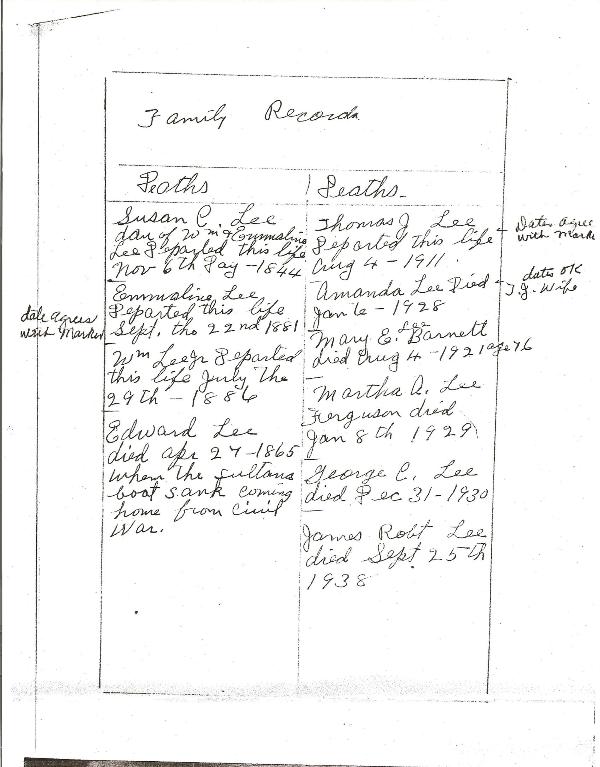 Family Records
Deaths
Susan C. Lee
dau of Wm & Emmaline
Lee Departed this life
Nov 6th Day - 1844
Emmaline Lee
Departed this life
Sept. the 22nd 1881
date agrees
with Marker
Wm Lee Jr Departed
this life July the
29th - 1886
Edward Lee
died Apr 27 - 1865
when the Sultana
boat sank coming
home from Civil
War.
Deaths
Thomas J Lee
Departed this life
Aug 4 - 1911.
Dates agree
with Marke
Amanda Lee Died
Jan 6 - 1928
dates OK
T.J. Wife
Mary E. Lee Barnett
died Aug 4 - 1921 age 76
Martha A. Lee
Ferguson died
Jan 8th 1929
George C. Lee
died Dec 31 - 1930
James Robt Lee
died Sept 25th
1938